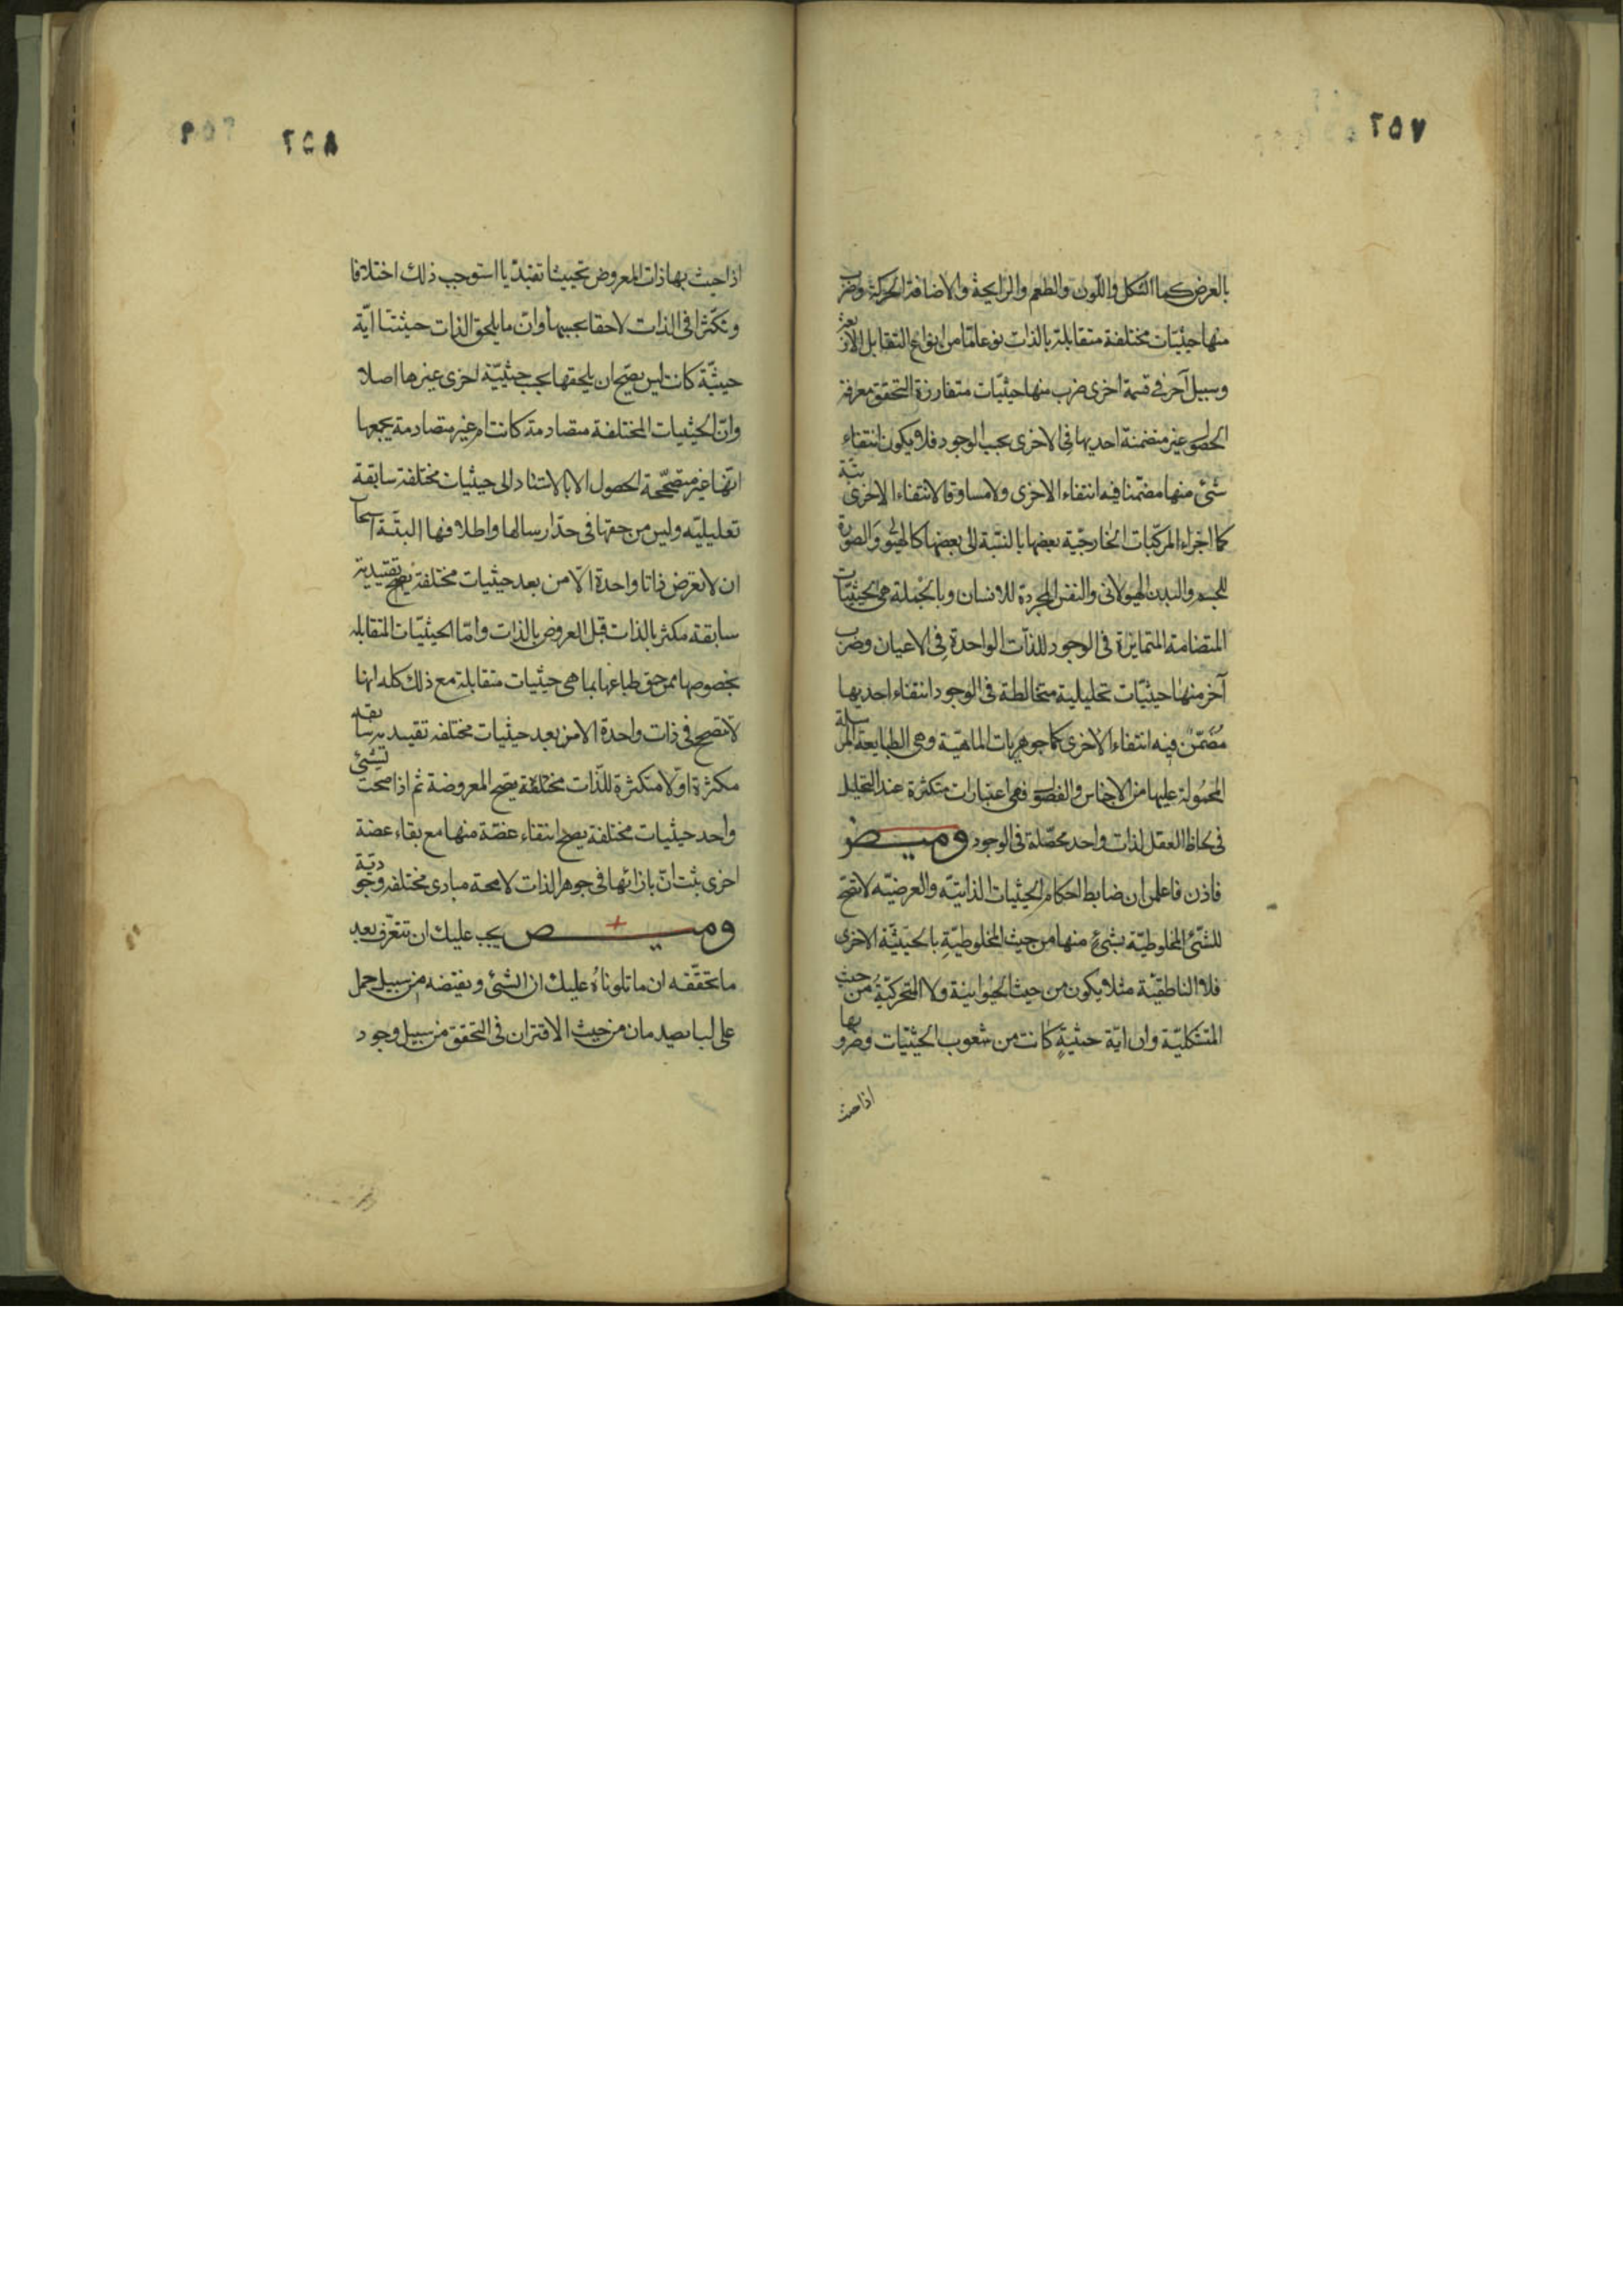 ٢٥٧
بالعرض كما الشكل واللون والطعم والرايحة والاضافة الحركة وضرب
منها حيثيّات مختلفة متقابلة بالذات نوعا مّا من انواع التقابل الاربعة
وسبيل آخر فى قسمة اخرى ضرب منها حيثيّات متفارزة التحقق معرفة
الحصول غير متضمنة احديها فى الاخرى بحسب الوجود فلا يكون انتفاء
شئ منها مضمّنا فيه انتفاء الاخرى ولا مساوقا لانتفاء الاخرى بتّة
كما اجزاء المركّبات الخارجيّة بعضها بالنسبة الى بعضها كالهيولى والصورة
للجسم والبدن الهيولانى والنفس المجردة للانسان وبالجملة هى الحيثيّات
المتضامة المتمايزة فى الوجود للذات الواحدة فى الاعيان وضرب
آخر منها حيثيّات تحليلية متخالطة فى الوجود انتفاء احديها
مضمّن فيه انتفاء الاخرى كما جوهريات الماهيّة وهى الطبايع المرسلة
المحمولة عليها من الاجناس والفصول فهى اعتبارات متكثرة عند التحليل
فى لحاظ العقل لذات واحد محصّلة فى الوجود وميض
فاذن فاعلمن ان ضابط احكام الحيثيات الذاتيّة والعرضيّة لا تصحّ
للشئ المخلوطيّة بشئ منها من حيث المخلوطيّة بالحيثيّة الاخرى
فلا الناطقيّة مثلا يكون من حيث الحيوانية ولا المتحركيّة من حيث
المتشكليّة وان ايّة حيثيةٍ كانت من شعوب الحيثيّات وضروبها
اذا حيث
٢٥٨ ٢٥٩
اذا حيث بها ذات المعروض تحييثا تقييديا استوجب ذلك اختلافا
وتكثرا فى الذات لاحقا بحسبها وانّ ما يلحق الذات حيثيتا ايّة
حيثيّة كانت ليس يصح ان يلحقها بحسب حيثيّة اخرى غيرها اصلا
وانّ الحيثيات المختلفة متصادمة كانت ام غير متصادمة يجمعها
انّها غير متصحّحة الحصول الا بالاستناد الى حيثيات مختلفة سابقة
تعليليّة وليس من حقها فى حدّ ارسالها واطلاقها البتّة
ان لا تعرض ذاتا واحدة الّا من بعد حيثيات مختلفة تقييدية
سابقة مكثر بالذات قبل العروض بالذات وامّا الحيثيّات المتقابلة
بخصوصها فمن حق طباعها بما هى حيثيات متقابلة مع ذلك كله انها
لا تصح فى ذات واحدة الا من بعد حيثيات مختلفة تقييدية سابقة
مكثرة اوّلا متكثرة للذات مختلفة يصح المعروضة ثم اذا صحت لشئ
واحد حيثيات مختلفة يصح انتفاء عضّة منها مع بقاء عضة
اخرى بثت انّ بازائها فى جوهر الذات لا محة مبادى مختلفة وجوديّة
وميض يجب عليك ان تتعرّف بعد
ما تحققه ان ما تلوناه عليك ان الشئ ونقيضه من سبيل حمل
على ليسا يصدمان من حيث الاقتران فى التحقق من سبيل وجود